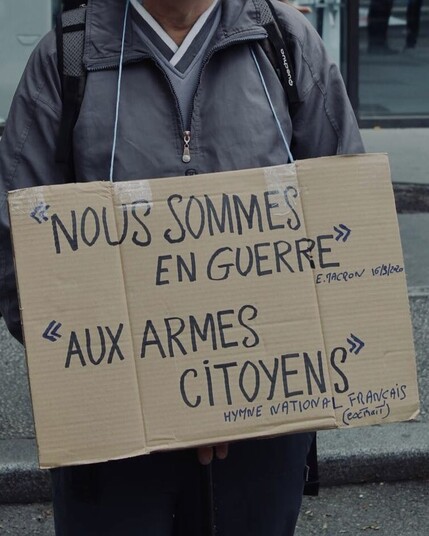 « NOUS SOMMES
EN GUERRE »
E. MACRON 16/3/2020
« AUX ARMES
CiTOYENS »
HYMNE NATIONAL FRANÇAIS
(extrait)